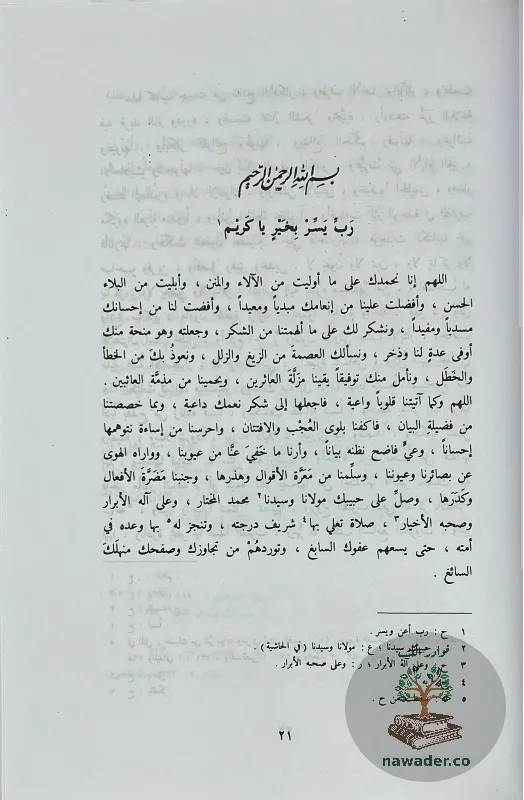 بسم الله الرحمن الرحيم
رَبِّ يَسِّرْ بِخَيْرٍ يا كَرِيْم ١
اللهم إنا نحمدك على ما أوليت من الآلاء والمنن ، وأبليت من البلاء
الحسن ، وأفضلت علينا من إنعامك مبدياً ومعيداً ، وأفضت لنا من إحسانك
مسدياً ومفيداً ، ونشكر لك على ما ألهمتنا من الشكر ، وجعلته وهو منحة منك
أوفى عدةٍ لنا وذخر ، ونسألك العصمةَ من الزيغ والزلل ، ونعوذُ بكَ من الخطأ
والخَطَل ، ونأمل منك توفيقاً يقينا مزلَّةَ العاثرين ، ويحمينا من مذمَّة العائبين .
اللهم وكما آتيتنا قلوباً واعية ، فاجعلها إلى شكر نعمك داعية ، وبما خصصتنا
من فضيلةِ البيان ، فاكفنا بلوى العُجْب والافتتان ، واحرسنا من إساءة نتوهمها
إحساناً ، وعيٍّ فاضح نظنه بياناً ، وأرنا ما خَفِيَ عنَّا من عيوبنا ، وواراه الهوى
عن بصائرنا وعيوننا ، وسلِّمنا من مَعَرَّة الأقوال وهذرها ، وجنبنا مَضَرَّةَ الأفعال
وكَدَرَها ، وصلِّ على حبيبك مولانا وسيدنا ٢ محمد المختار ، وعلى آله الأبرار
وصحبه الأخيار ٣ ، صلاة تعلي بها ٤ شريف درجته ، وتنجز له ٥ بها وعده في
أمته ، حتى يسعهم عفوك السابغ ، وتوردهُمْ من تجاوزك وصفحك منهلَكَ
السائغ .
١ ح : رب أعن ويسر .
٢ حبيبك سيدنا ؛ ع : مولانا وسيدنا ( في الحاشية ) .
٣ ح : وعلى آله الأبرار ؛ ر : وعلى صحبه الأبرار .
٤
٥ من ح .
٢١
nawader.co